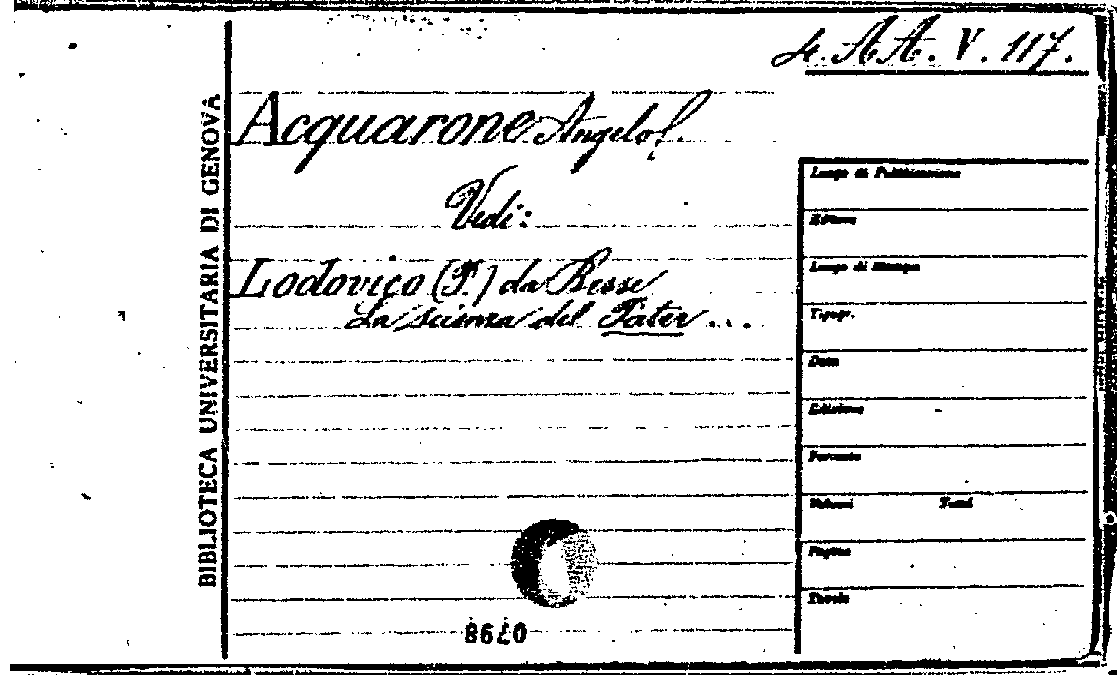 4. AA. V. 117.
BIBLIOTECA UNIVERSITARIA DI GENOVA
Acquarone Angelo f.
Vedi:
Lodovico (P.) da Besse
La scienza del Pater ...
Luogo di Pubblicazione
Editore
Luogo di Stampa
Tipogr.
Data
Edizione
Formato
Volumi Tomi
Pagine
Tavole
0798